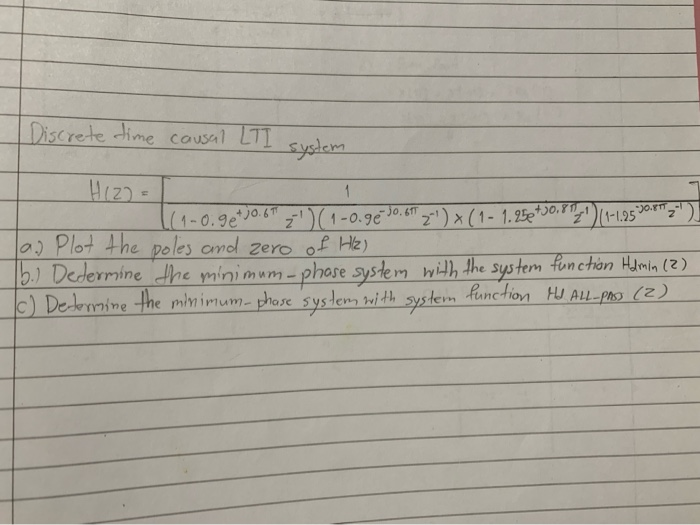 Discrete time causal LTI system
H(z) = [ 1
((1-0.9e^+j0.6π z^-1)(1-0.9e^-j0.6π z^-1) × (1-1.25e^+j0.8π z^-1)(1-1.25^-j0.8π z^-1) ]
a.) Plot the poles and zero of H(z)
b.) Dedermine the minimum-phase system with the system function Hdmin (z)
c) Determine the minimum-phase system with system function Hd ALL-pass (z)